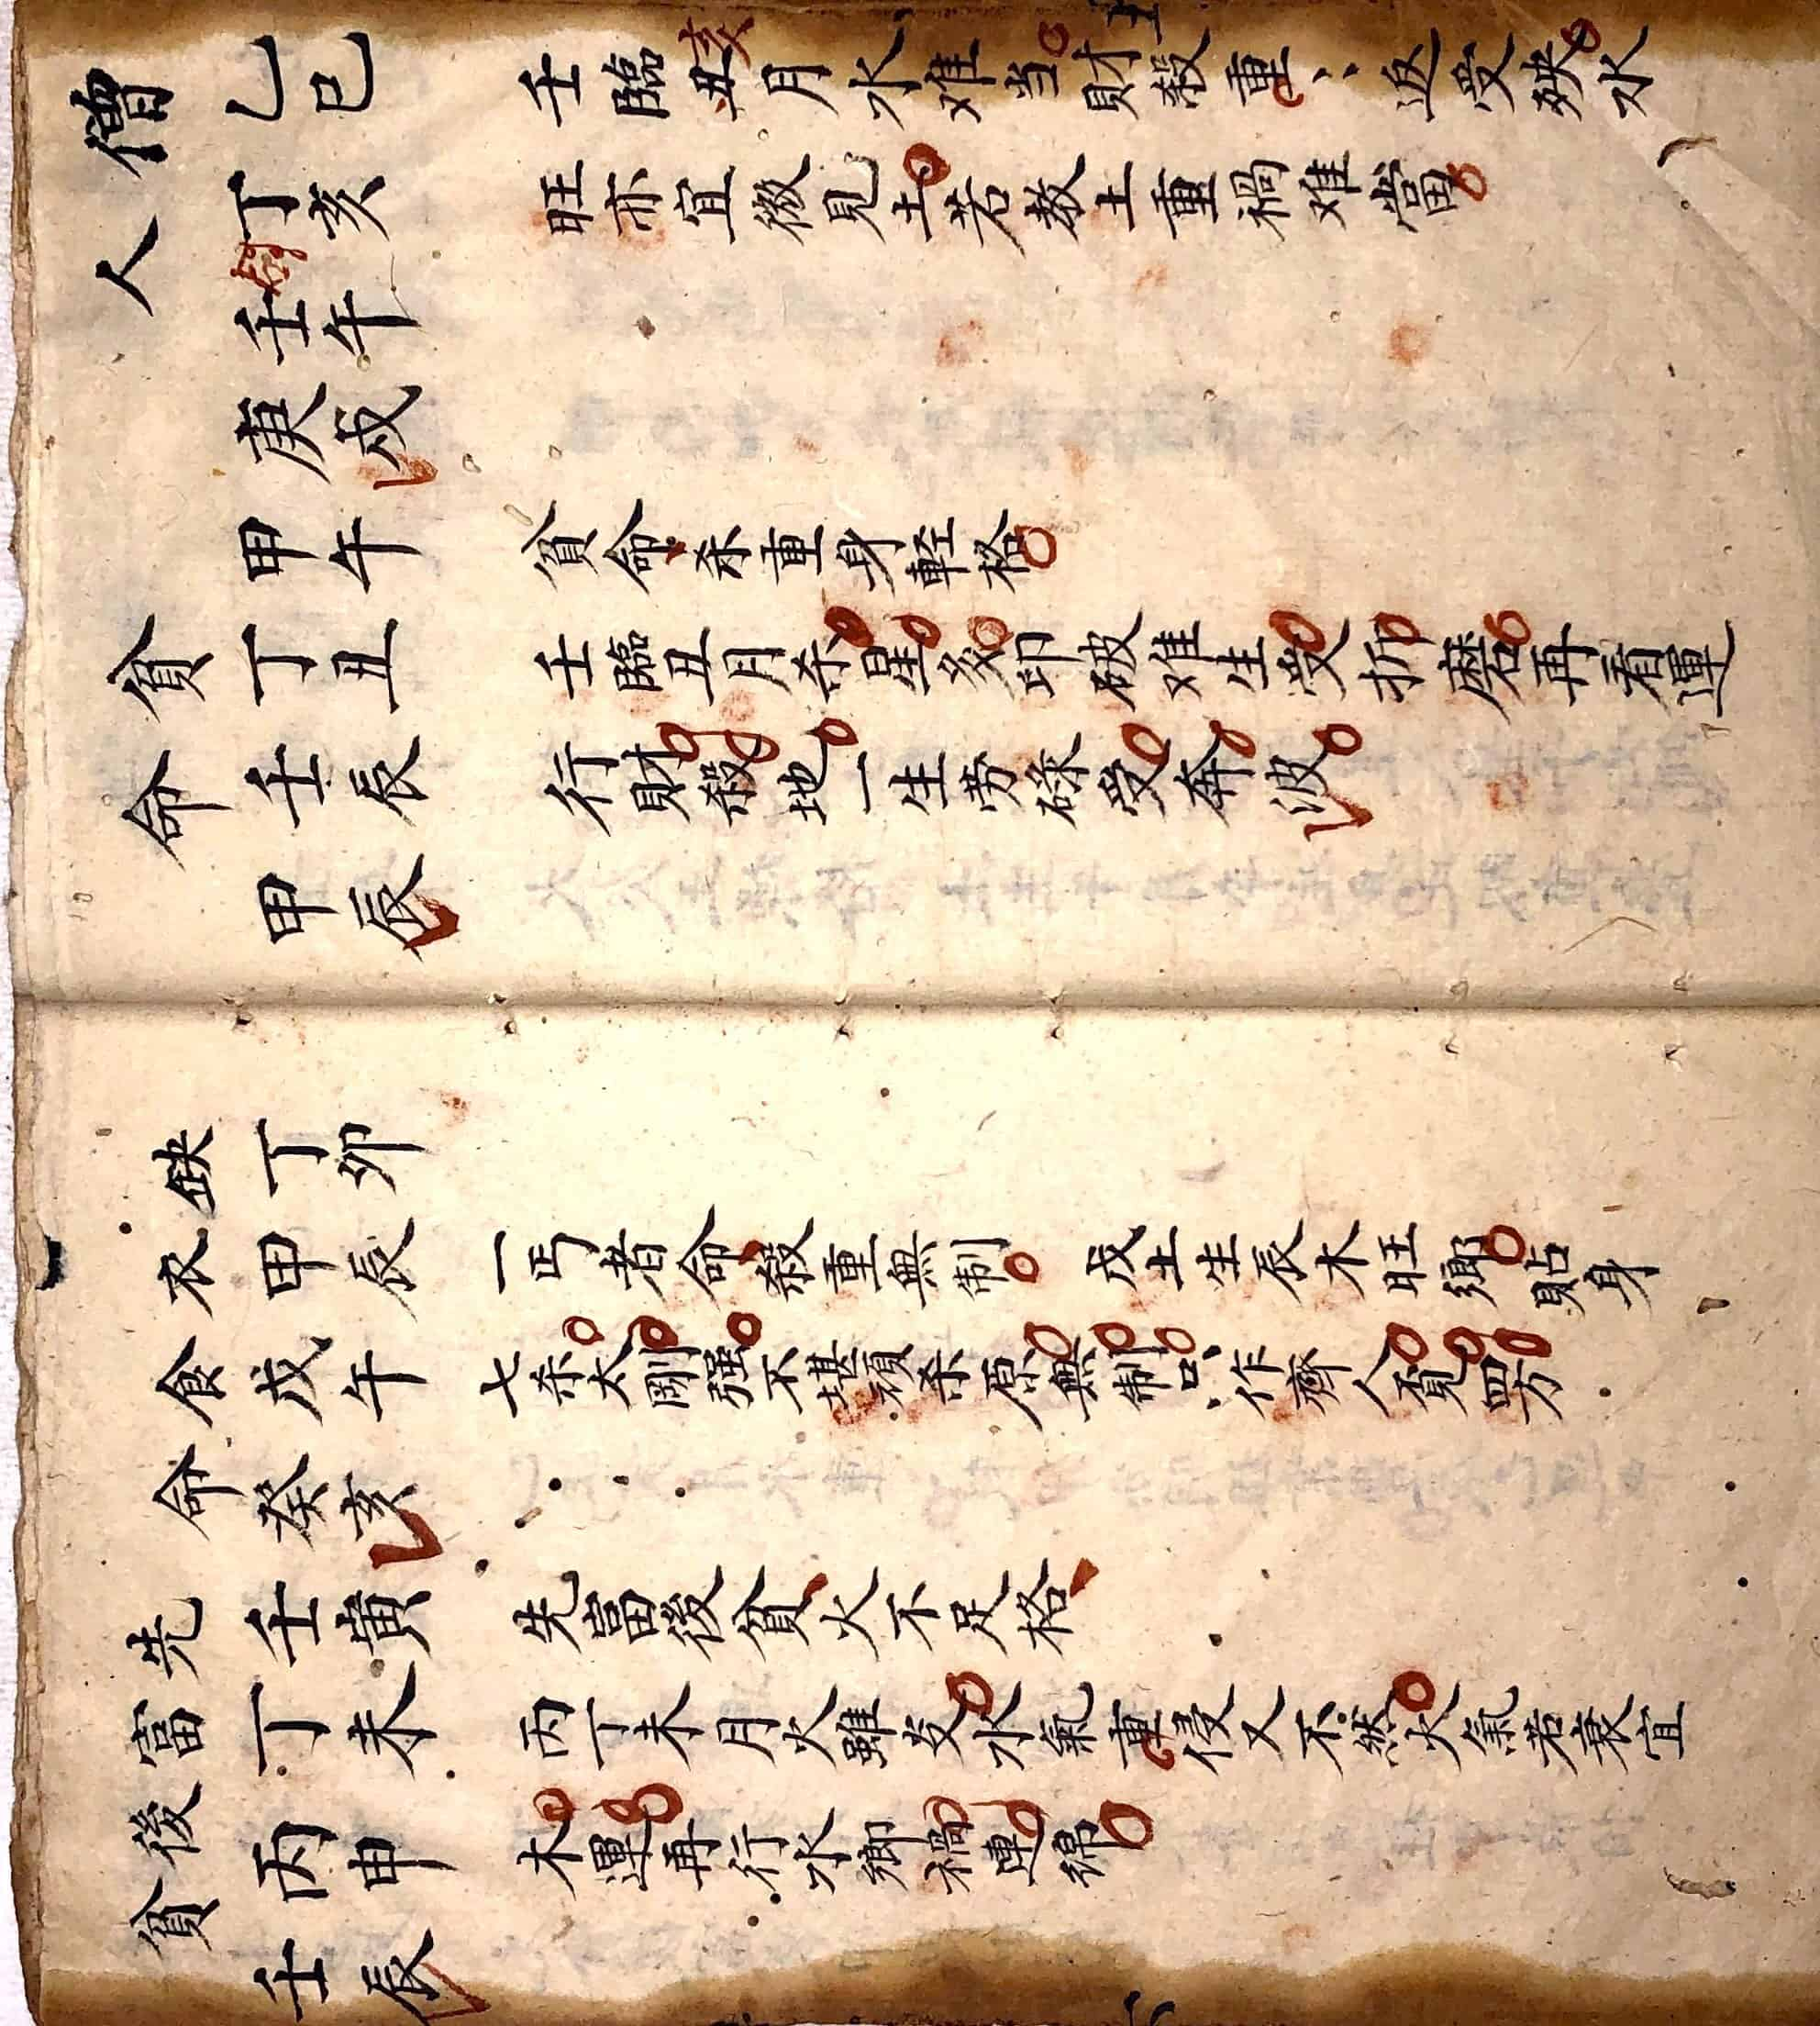 僧人
乙巳 壬臨亥月水难当財殺重〻返受殃水
丁亥 旺亦宜微見土若教土重禍难當
壬午
庚戌
貧命
甲午 貧命杀重身輕格
丁丑 壬臨丑月杀星多印破难生受折磨再看運
壬辰 行財殺地一生劳碌受奔波
甲辰
缺衣食命
丁卯
甲辰 一丐者命殺重無制 戊土生辰木旺鄉貼身
戊午 七杀太剛强不堪頑杀原無制只作齊人覓四方
癸亥
先富後貧
壬寅 先富後貧火不足格
丁未 丙丁未月火雖炎水氣重侵又不然火氣若衰宜
丙申 木運再行水鄉禍連綿
壬辰